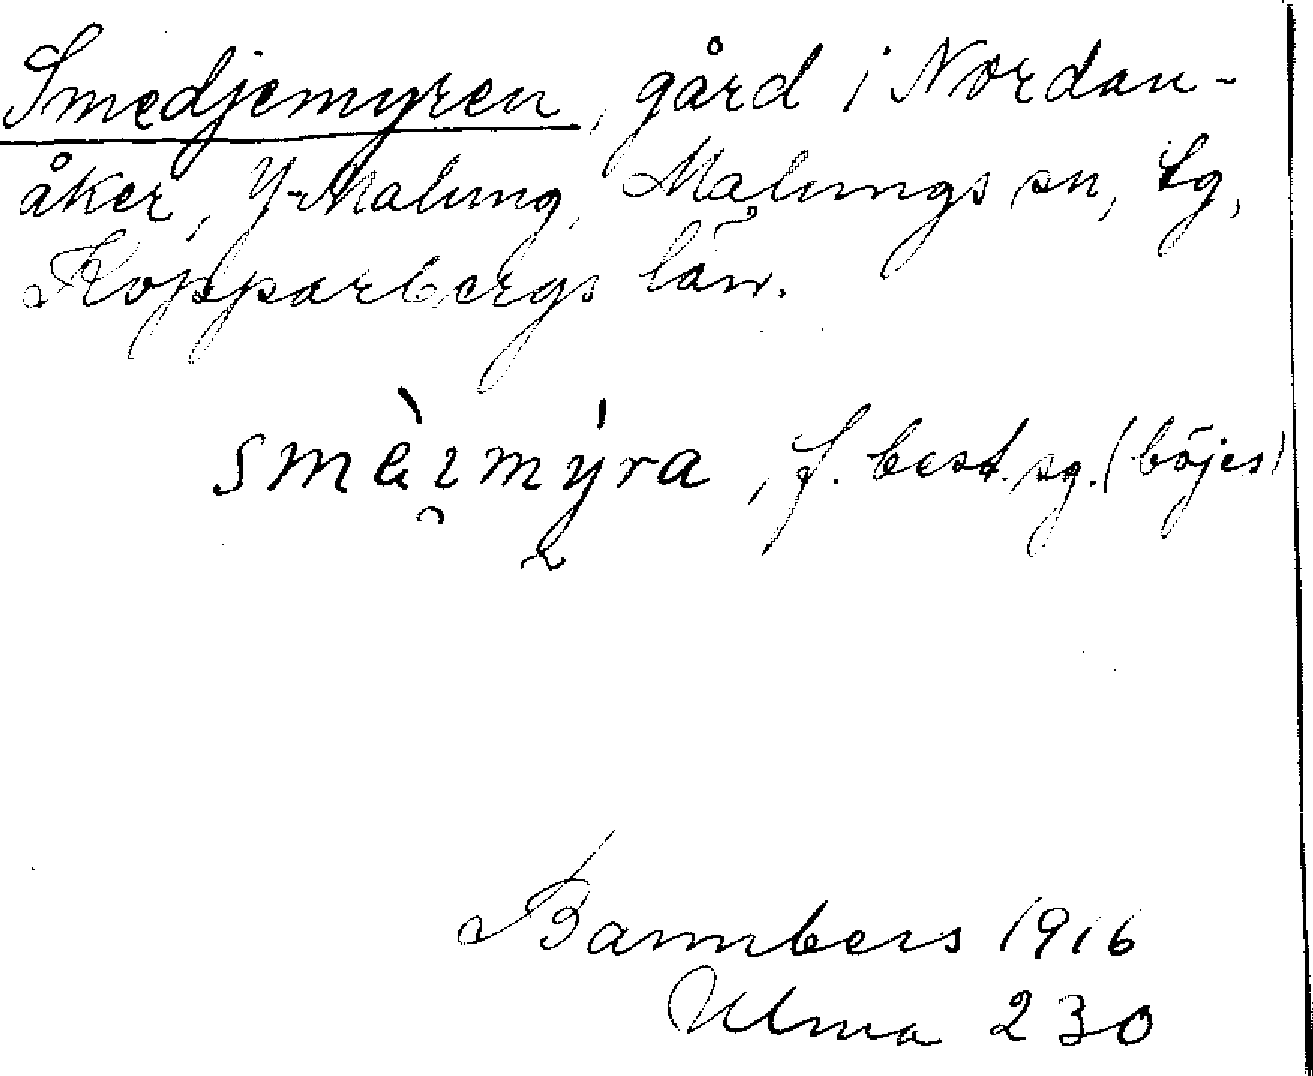 Smedjemyren, gård i Nordan-
åker, Y-Malung, Malungs sn, Lg,
Kopparbergs län.
smèzmýra, f. best. sg. (böjes)
Bannbers 1916
Ulma 230